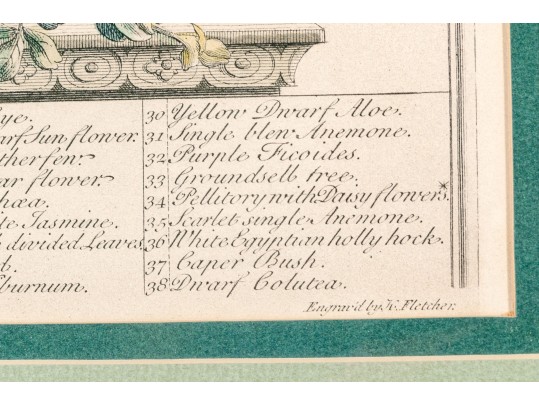 ye. 30 Yellow Dwarf Aloe.
arf Sun flower. 31 Single blew Anemone.
therfew. 32 Purple Ficoides.
ar flower. 33 Groundsell tree.
hæa. 34 Pellitory with Daisy flowers.
te Jasmine. 35 Scarlet single Anemone.
divided Leaves 36 White Egyptian holly hock.
37 Caper Bush.
burnum. 38 Dwarf Colutea.
Engrav'd by H. Fletcher.